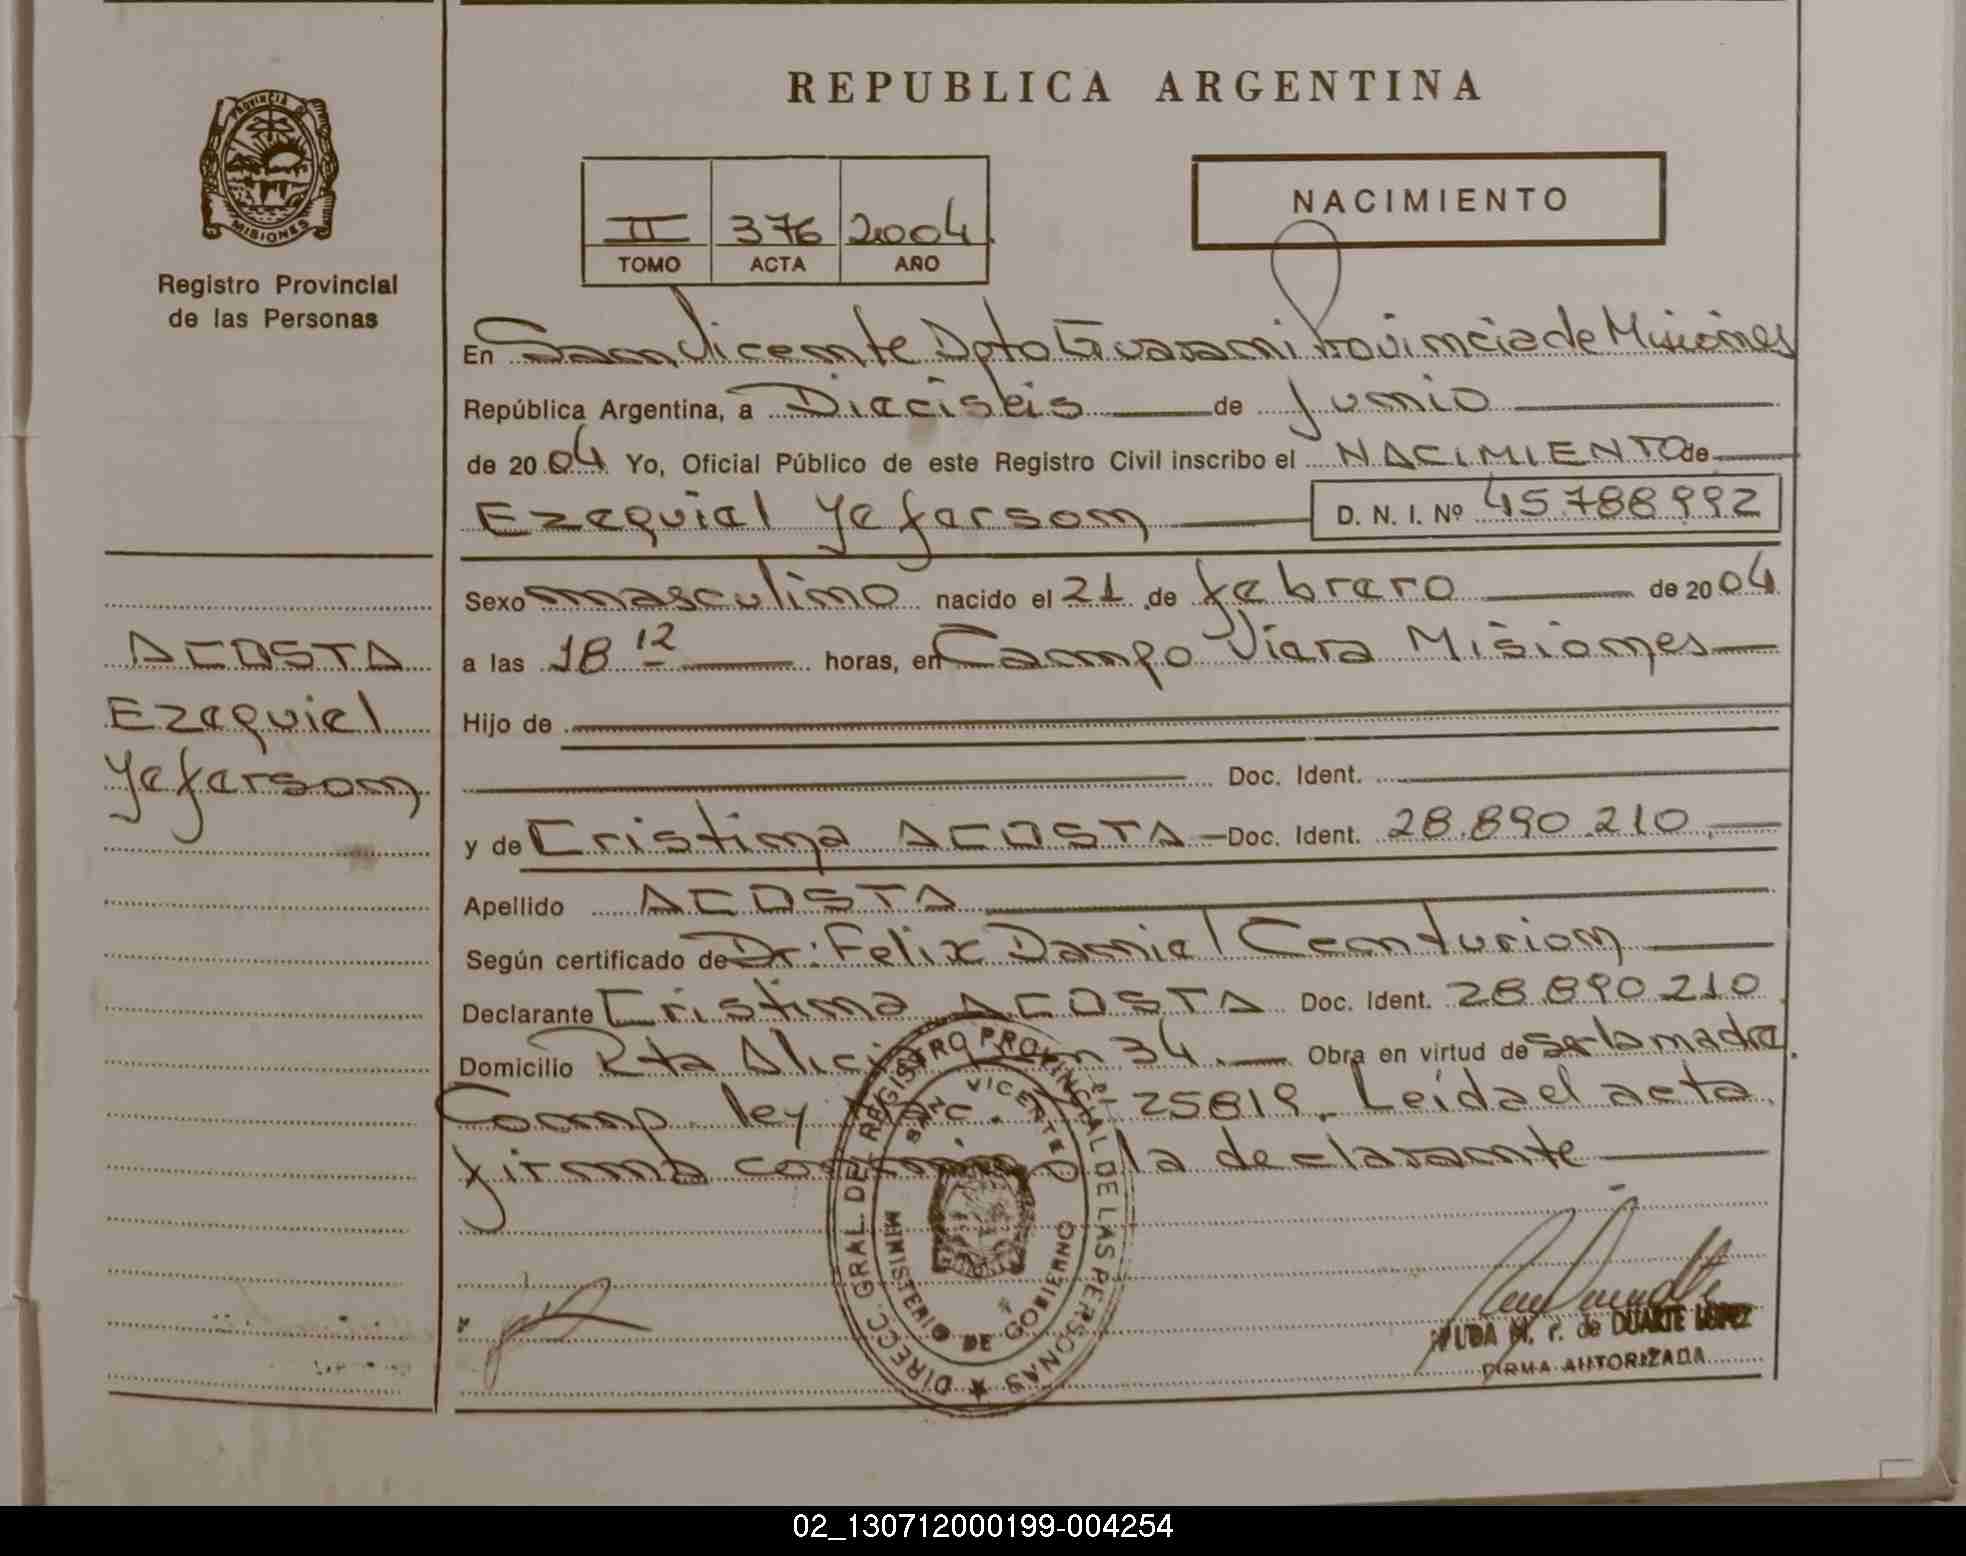 REPUBLICA ARGENTINA
PROVINCIA D
MISIONES
Registro Provincial
de las Personas
NACIMIENTO
II 376 2004
TOMO ACTA AÑO
En San Vicente Dpto Guarani Provincia de Misiones
República Argentina, a Dieciseis de Junio
de 2004 Yo, Oficial Público de este Registro Civil inscribo el NACIMIENTO de
Ezequiel Yeferson D. N. I. Nº 45.788.992
Sexo masculino nacido el 21 de febrero de 2004
a las 18 12 horas, en Campo Viera Misiones
Hijo de
Doc. Ident.
y de Cristina ACOSTA Doc. Ident. 28.890.210
Apellido ACOSTA
Según certificado de Dr: Felix Daniel Centurion
Declarante Cristina ACOSTA Doc. Ident. 28.890.210
Domicilio Rta Alicia Km 34. Obra en virtud de ser la madre.
Comp. ley Nac. Nº 25819. Leída el acta
firma conmigo la declarante
ACOSTA
Ezequiel
Yeferson
DIRECC. GRAL. DEL REGISTRO PROVINCIAL DE LAS PERSONAS
SAN VICENTE
MINISTERIO DE GOBIERNO
DUARTE LOPEZ
FIRMA AUTORIZADA
02_130712000199-004254